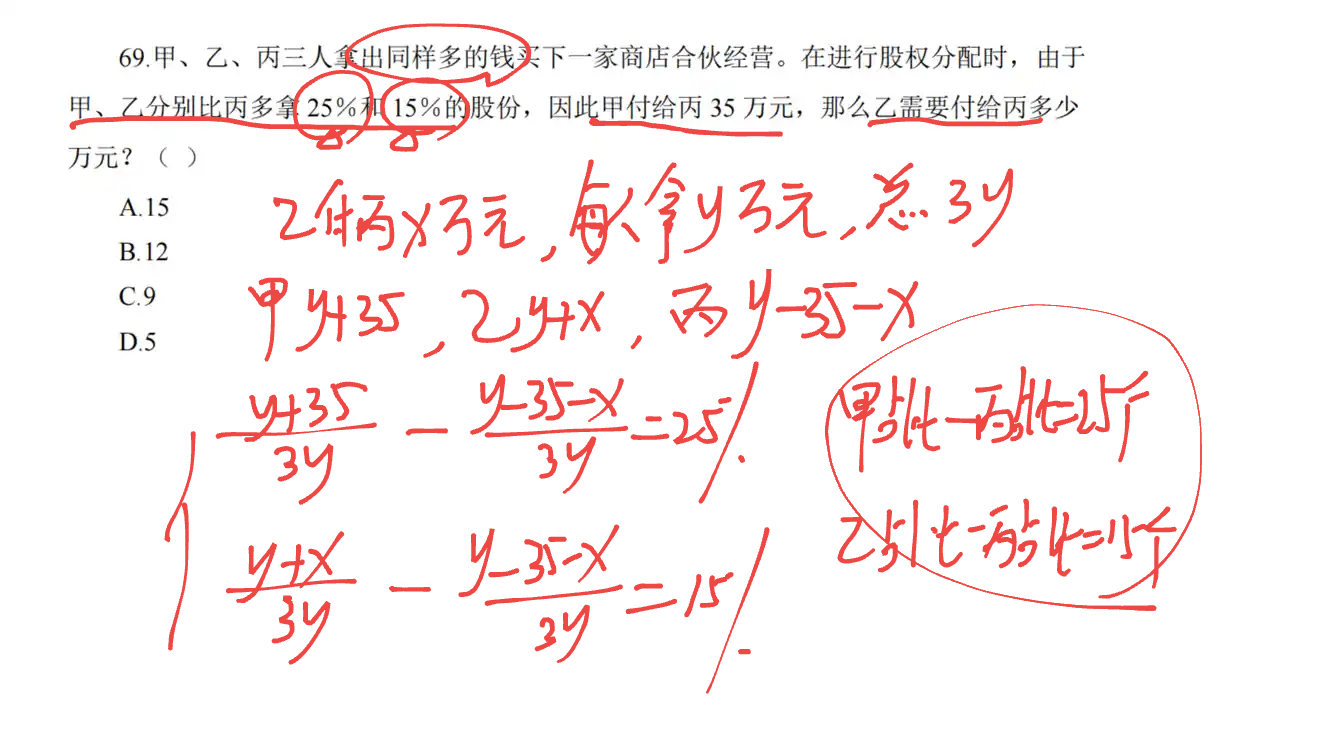 69.甲、乙、丙三人拿出同样多的钱买下一家商店合伙经营。在进行股权分配时，由于
甲、乙分别比丙多拿 25%和 15%的股份，因此甲付给丙 35 万元，那么乙需要付给丙多少
万元？（ ）
A.15
B.12
C.9
D.5
乙付丙x万元，每人拿y万元，总3y
甲y+35，乙y+x，丙y-35-x
(y+35)/3y - (y-35-x)/3y = 25%.
(y+x)/3y - (y-35-x)/3y = 15%.
甲占比-丙占比=25个
乙占比-丙占比=15个